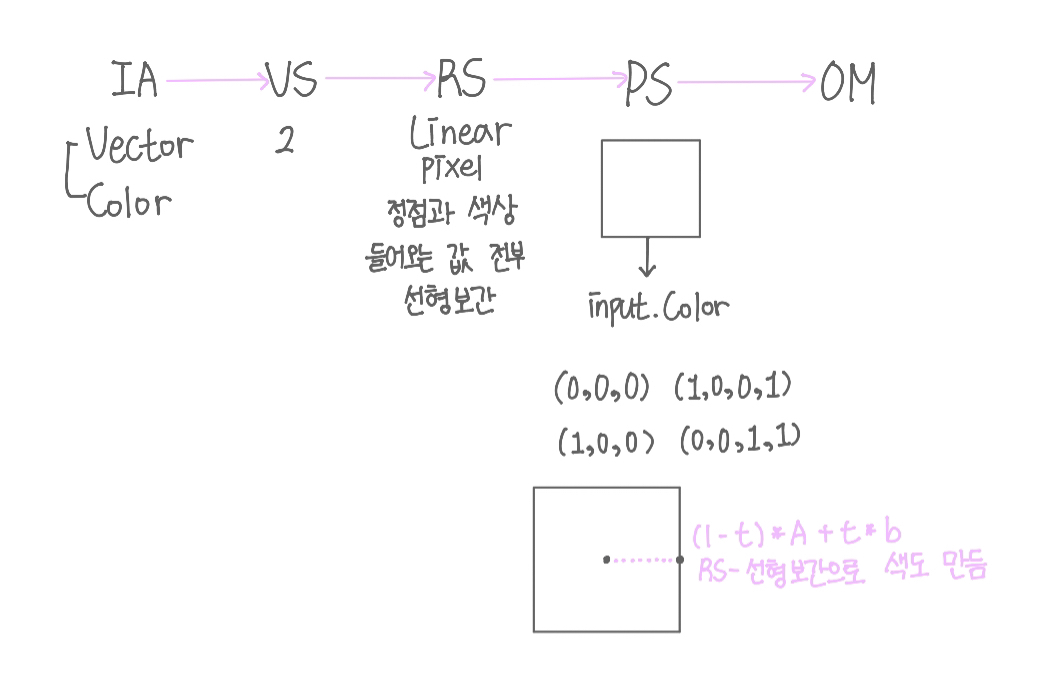 IA VS RS PS OM
Vector 2 Linear
Color pixel
정점과 색상
들어오는 값 전부
선형보간
input.Color
(0,0,0) (1,0,0,1)
(1,0,0) (0,0,1,1)
(1-t)*A+t*b
RS-선형보간으로 색도 만듬